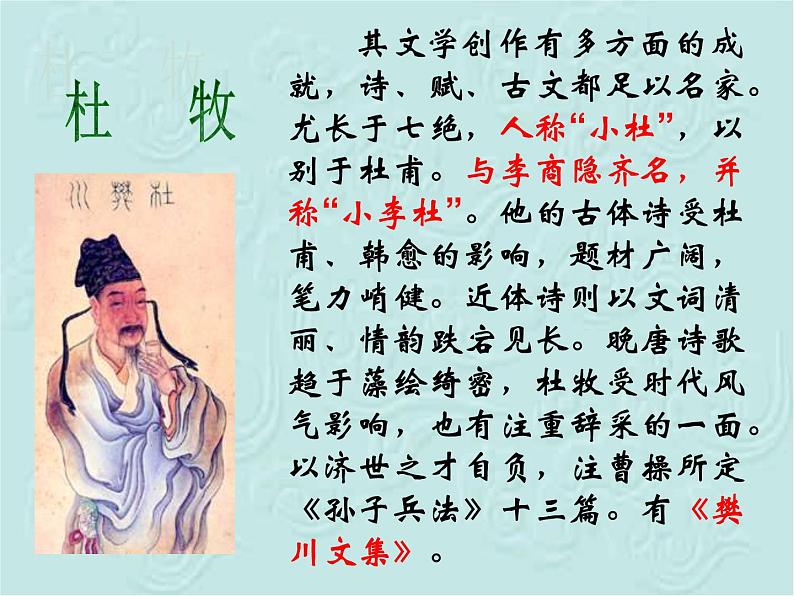 杜 牧
杜樊川
其文学创作有多方面的成
就，诗、赋、古文都足以名家。
尤长于七绝，人称“小杜”，以
别于杜甫。与李商隐齐名，并
称“小李杜”。他的古体诗受杜
甫、韩愈的影响，题材广阔，
笔力峭健。近体诗则以文词清
丽、情韵跌宕见长。晚唐诗歌
趋于藻绘绮密，杜牧受时代风
气影响，也有注重辞采的一面。
以济世之才自负，注曹操所定
《孙子兵法》十三篇。有《樊
川文集》。